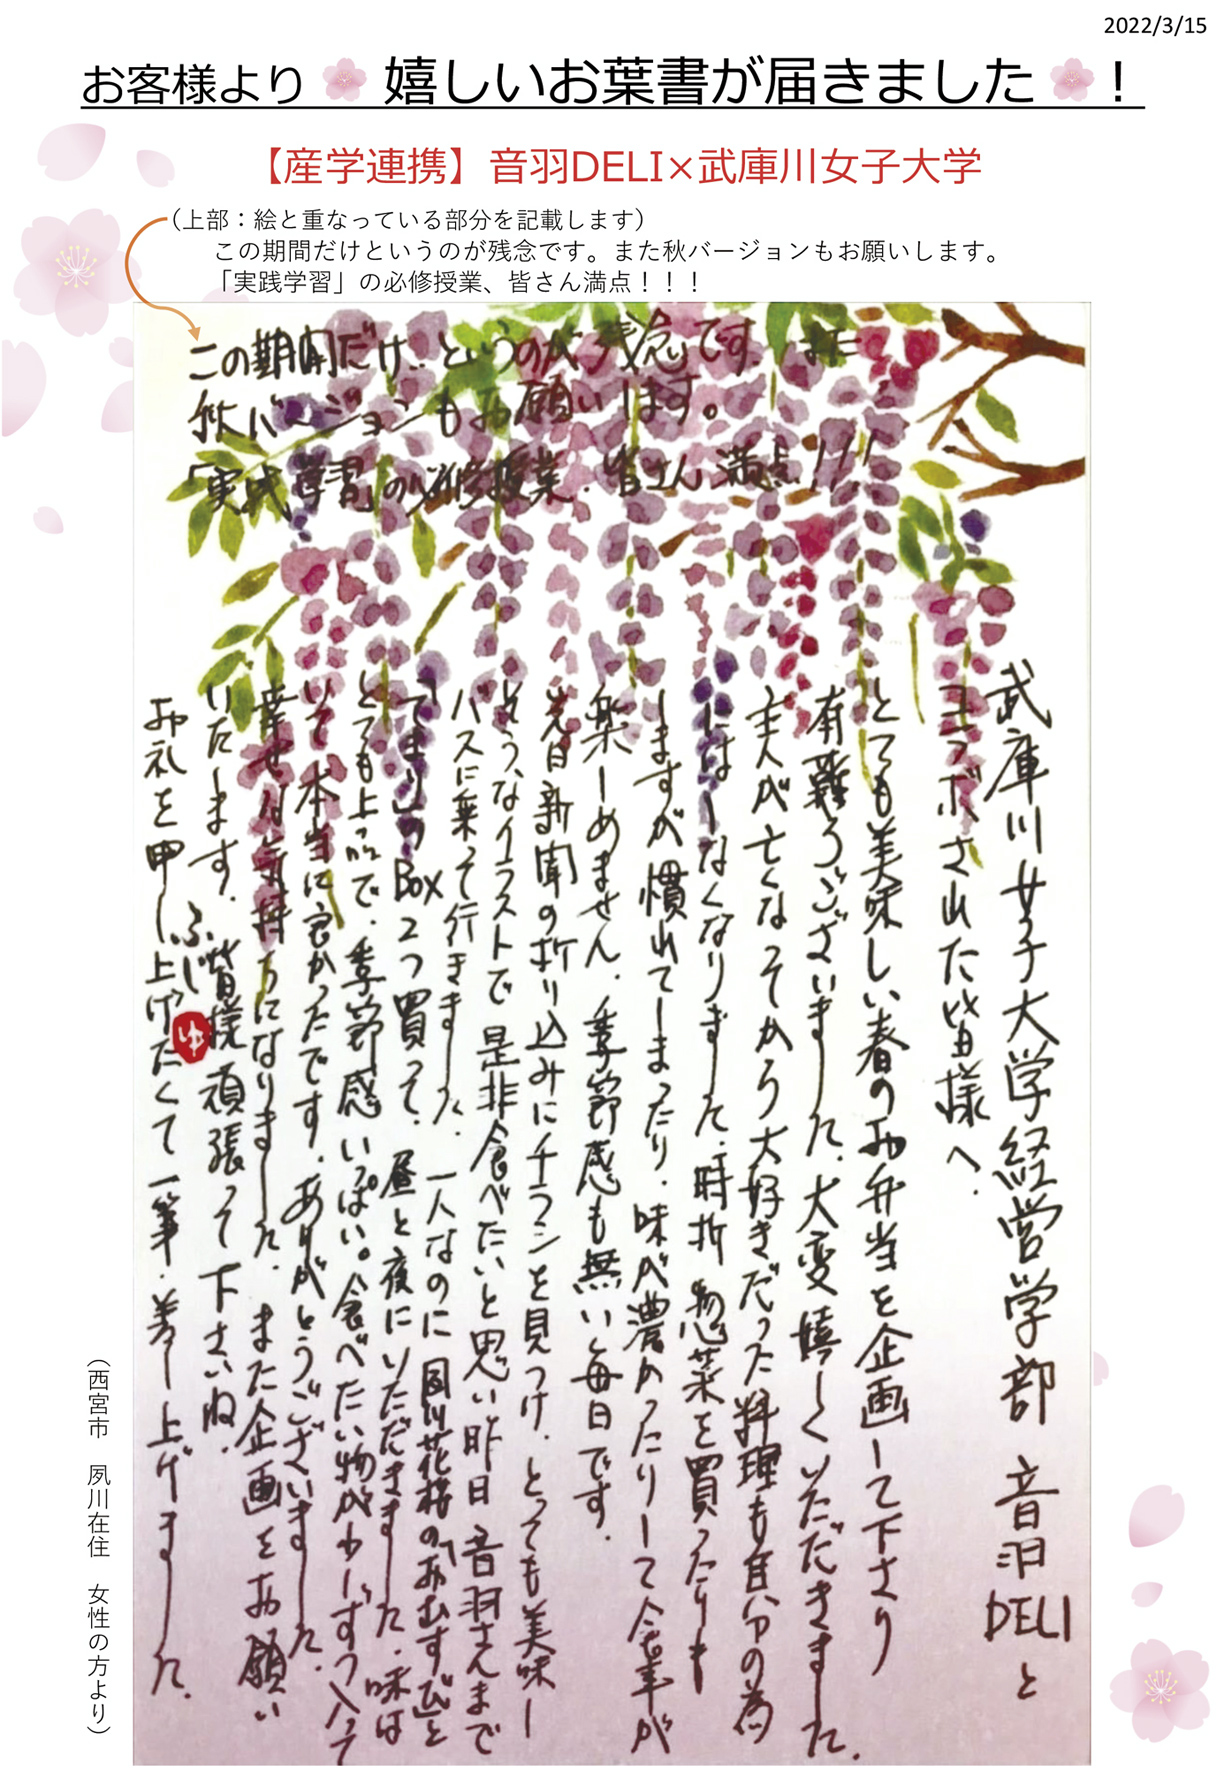 2022/3/15
お客様より 嬉しいお葉書が届きました！
【産学連携】音羽DELI×武庫川女子大学
（上部：絵と重なっている部分を記載します）
この期間だけというのが残念です。また秋バージョンもお願いします。
「実践学習」の必修授業、皆さん満点！！！
この期間だけというのが残念です。また
秋バージョンもお願いします。
「実践学習」の必修授業、皆さん満点！！！
武庫川女子大学経営学部 音羽DELIと
コラボされた皆様へ、
とても美味しい春のお弁当を企画して下さり
有難うございました。大変嬉しくいただきました。
主人が亡くなってから大好きだった料理も自分の為
にはしなくなりました。時折 惣菜を買ったりも
しますが慣れてしまったり、味が濃かったりして食事が
楽しめません。季節感も無い毎日です。
先日新聞の折り込みにチラシを見つけ、とっても美味し
そうなイラストで 是非食べたいと思い昨日 音羽さんまで
バスに乗って行きました。一人なのに 同川花桜の「おむすび」と
「てまり」のBox 2つ買って、昼と夜にいただきました。味は
とても上品で、季節感いっぱい。食べたい物が少しずつ入って
いて 本当に良かったです。ありがとうございました。
幸せな気持ちになりました。また企画をお願い
いたします。皆様頑張って下さいね。
お礼を申し上げたくて一筆、差し上げました。
ふじ
ゆ
（西宮市 夙川在住 女性の方より）